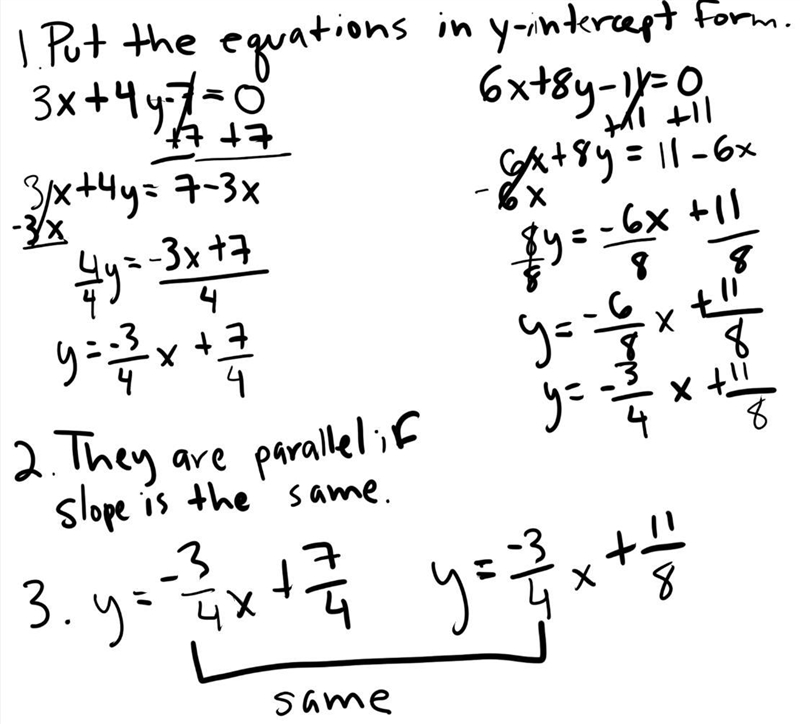 1. Put the equations in y-intercept form.
3x+4y-7=0
+7 +7
3x+4y=7-3x
-3x
4/4 y=-3x+7/4
y=-3/4 x+7/4
6x+8y-11=0
+11 +11
6x+8y=11-6x
-6x
8/8 y=-6x/8 +11/8
y=-6/8 x +11/8
y=-3/4 x +11/8
2. They are parallel if
slope is the same.
3. y=-3/4 x+7/4 y=-3/4 x+11/8
same